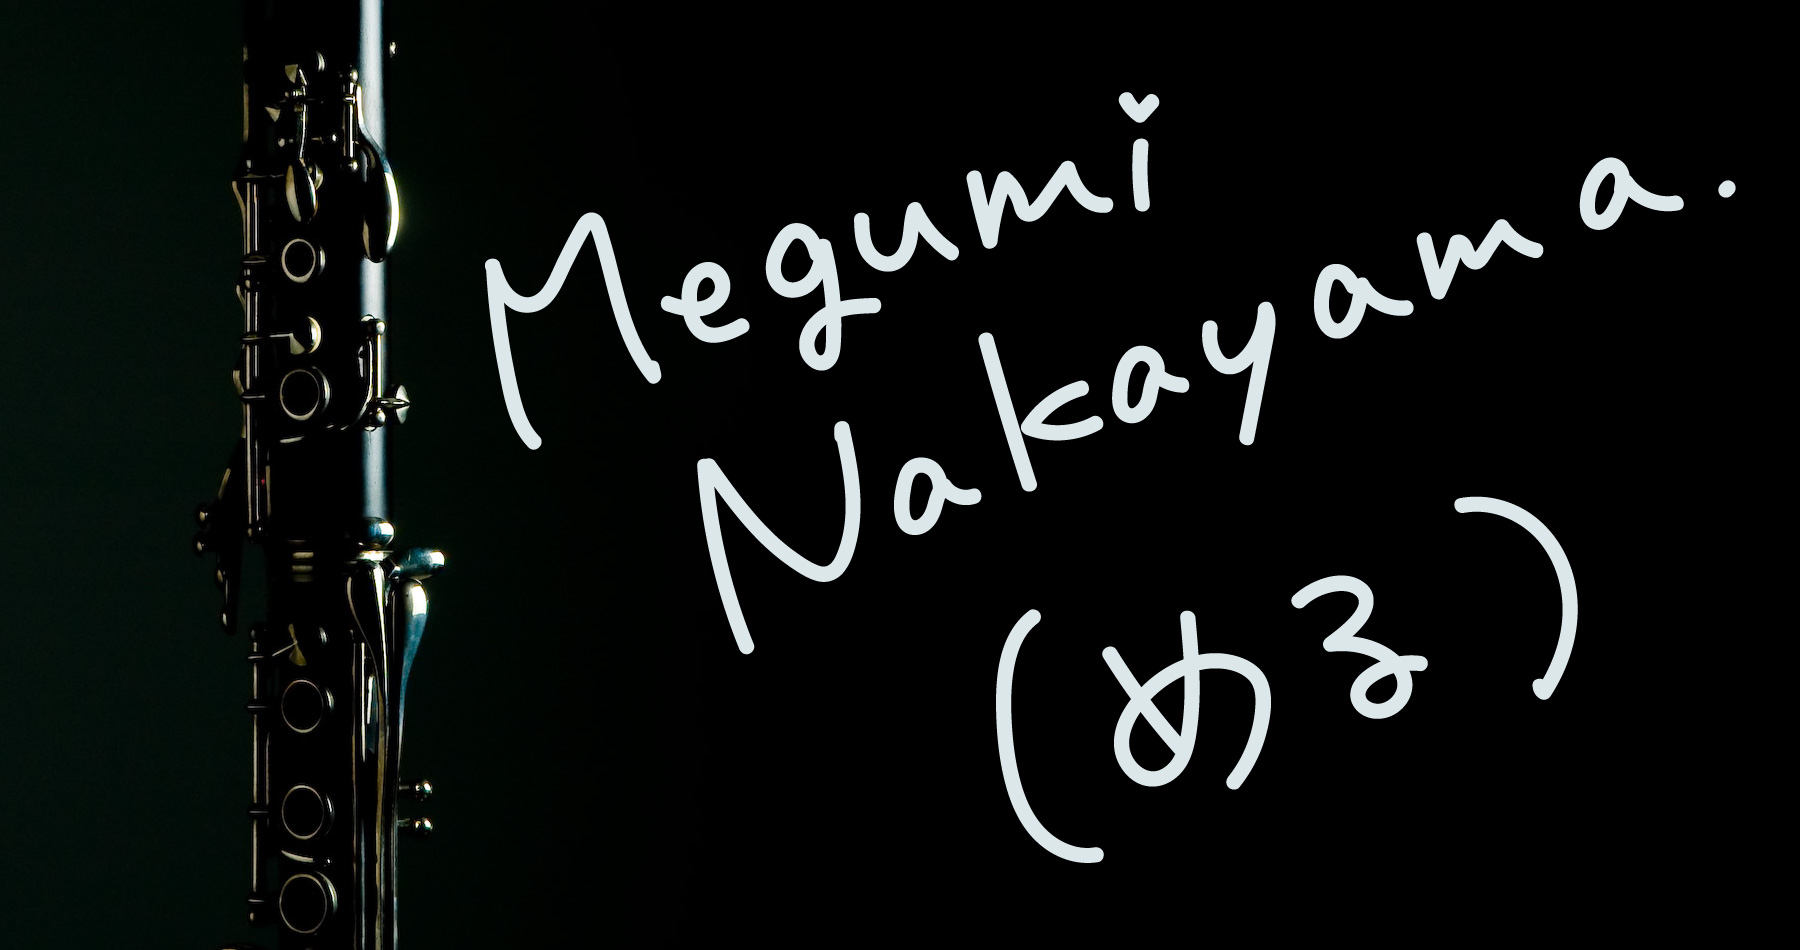 Megumi
Nakayama.
(める)